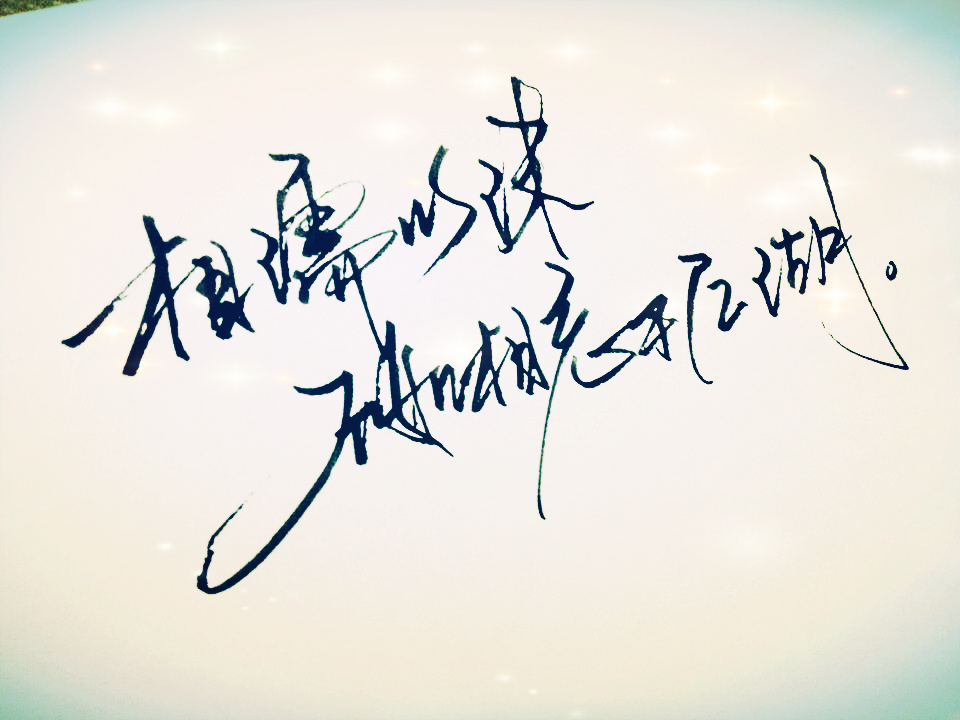 相濡以沫
不如相忘于江湖。